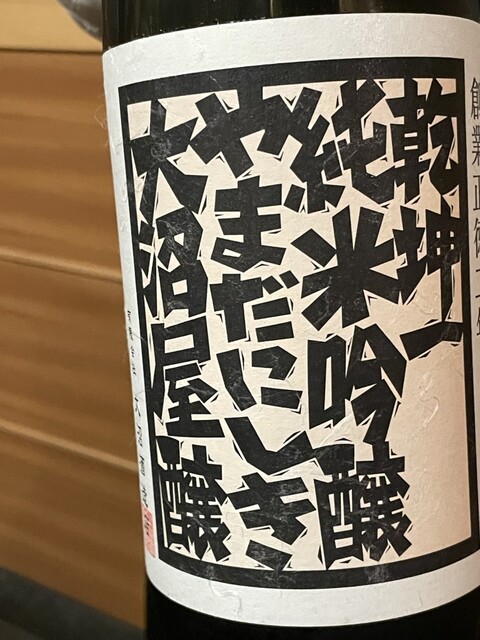 創業正徳二年
乾坤一
純米吟醸
やまだにしき
大沼屋醸